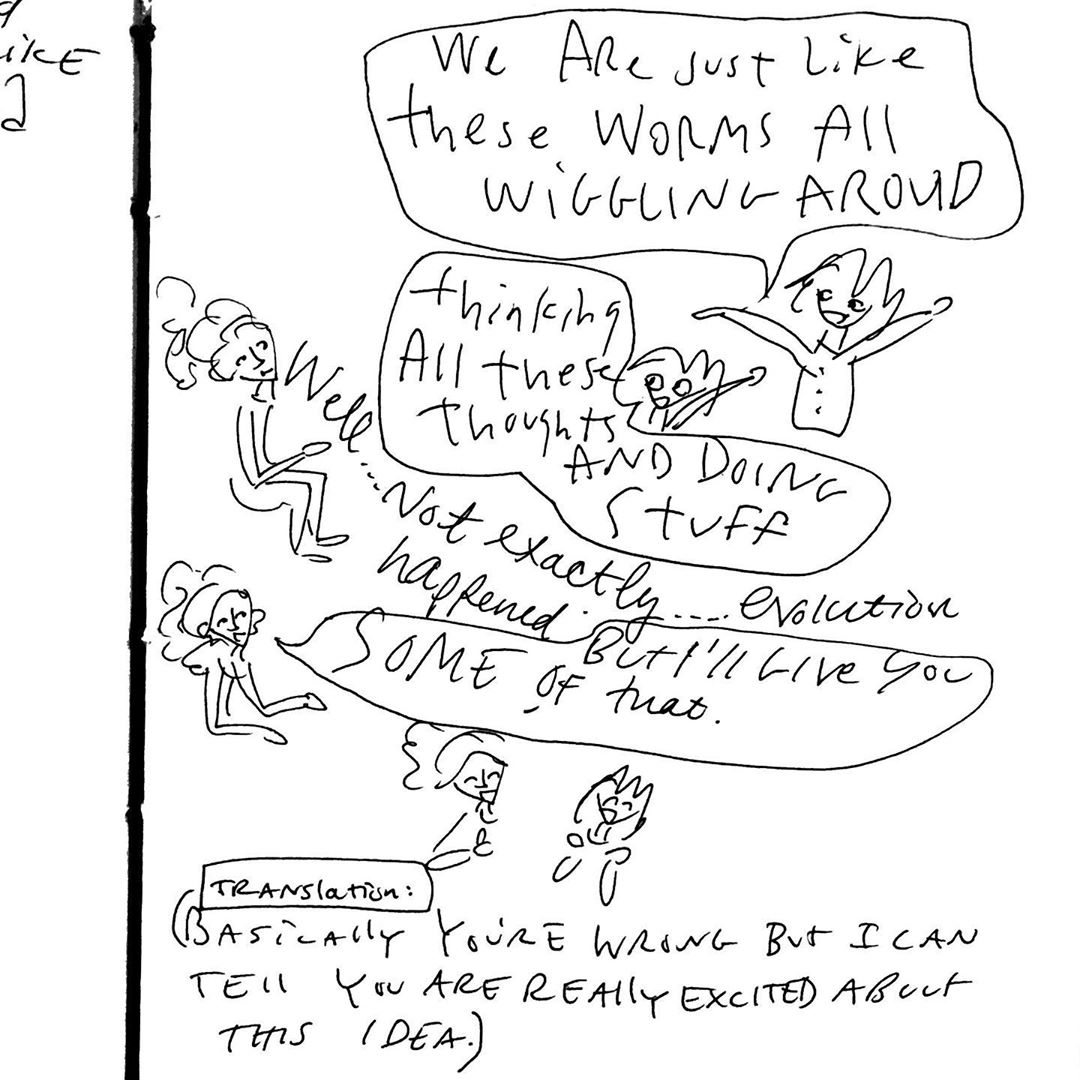 ike
We Are just like
these worms all
wiggling aroud
thinking
All these
thoughts
AND DOING
STUFF
Well...Not exactly.... evolution
happened.
SOME But I'll Give you
of that.
TRANSlation:
(BASICAlly YOU'RE WRONG But I CAN
TEll You ARE REAlly EXCITED ABOUT
THIS IDEA.)